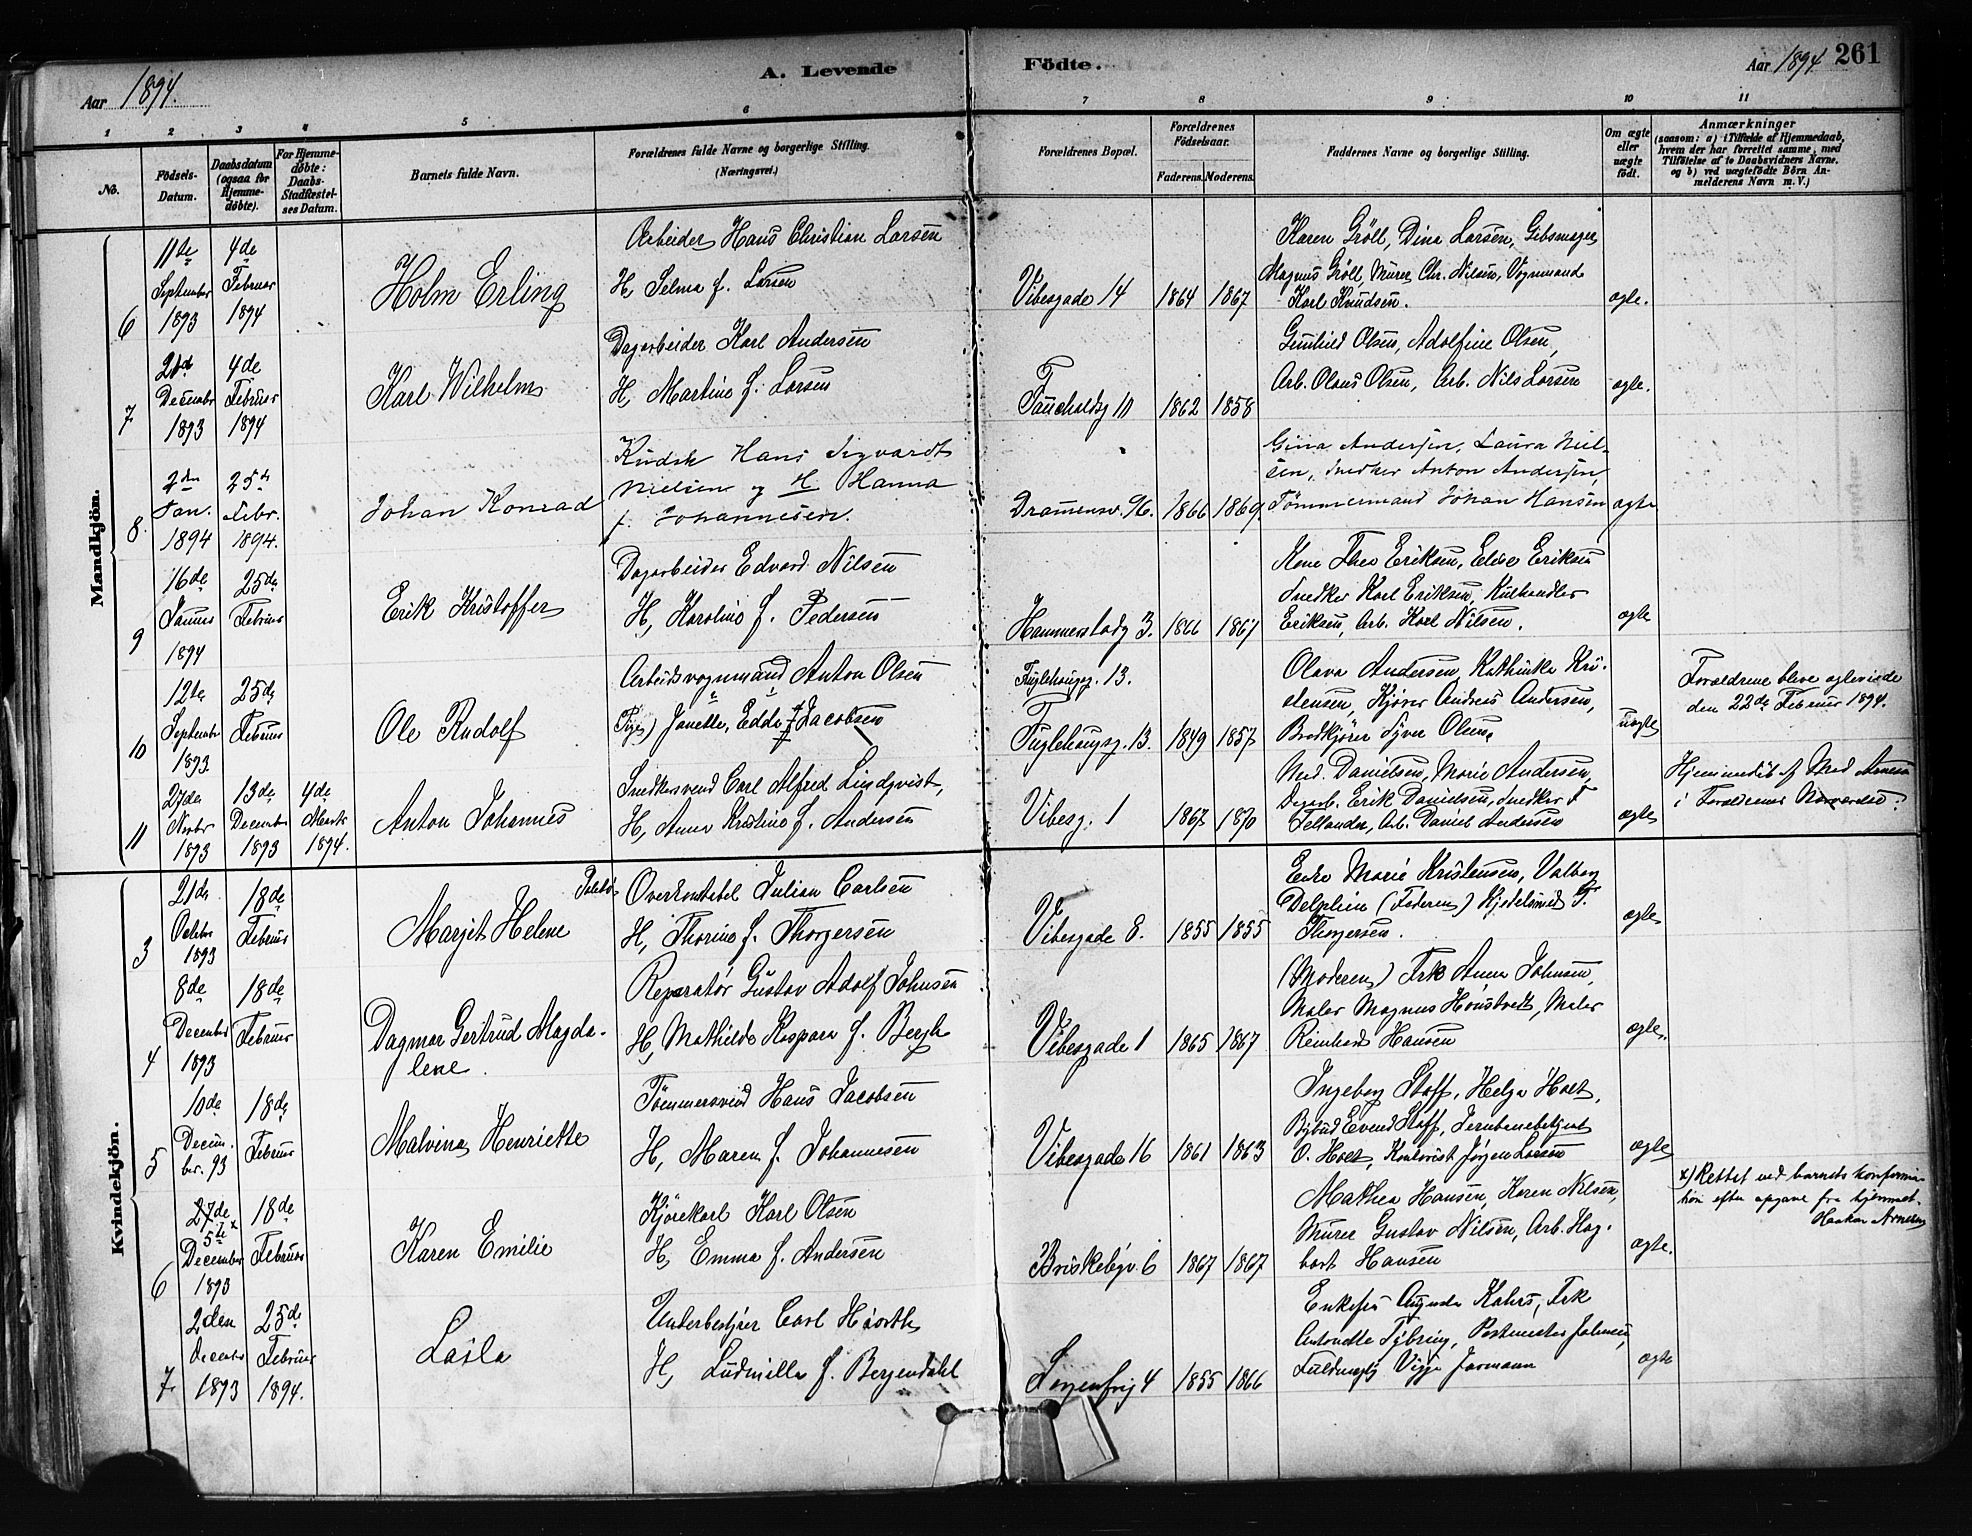 Aar 1894.
A. Levende
Födte.
Aar 1894 261
1 2 3 4 5 6 7 8 9 10 11
No.
Födsels-Datum.
Daabsdatum (ogsaa for Hjemme-döbte).
For Hjemme-döbte: Daabs-Stadfæstel-ses Datum.
Barnets fulde Navn.
Forældrenes fulde Navne og borgerlige Stilling.
(Næringsvei.)
Forældrenes Bopæl.
Forældrenes Födselsaar.
Faderens. Moderens.
Faddernes Navne og borgerlige Stilling.
Om ægte eller uægte födt.
Anmærkninger
(saasom: a) i Tilfælde af Hjemmedaab,
hvem der har forrettet samme, med
Tilföielse af to Daabsvidners Navne,
og b) ved uægtefödte Börn An-
melderens Navn m. V.)
Mandkjön.
6
11de September 1893
4de Februar 1894
Holm Erling
Arbeider Hans Christian Larsen
H, Selma f. Larsen
Vibesgade 14
1864 1867
Karen Gröll, Dina Larsen, Gibsmager
Magnus Gröll, Murer Chr. Nilsen, Vognmand
Karl Knudsen.
ægte.
7
21de December 1893
4de Februar 1894
Karl Wilhelm
Dagarbeider Karl Andersen
H, Martine f. Larsen
Fauchaldsg 10
1862 1858
Gunhild Olsen, Adolfine Olsen,
Arb. Olaus Olsen, Arb. Nils Larsen
ægte.
8.
2den Jan. 1894
25de Febr. 1894.
Johan Konrad
Kudsk Hans Sigvardt
Nielsen og H Hanna
f. Johannesen.
Dramensv. 96.
1866 1869
Gina Andersen, Laura Niel-
sen, Snedker Anton Andersen,
Tömmermand Johan Hansen
ægte
9
16de Januar 1894
25de Februar
Erik Kristoffer
Dagarbeider Edvard Nilsen
H, Karoline f. Pedersen
Hammerstadg 3.
1866 1867
Kone Thea Eriksen, Elise Eriksen
Snedker Karl Eriksen, Kulhandler
Eriksen, Arb. Karl Nilsen.
ægte
10
12te September 1893
25de Februar
Ole Rudolf
Arbeidsvognmand Anton Olsen
Pige) Janette, Edda f Jacobsen
Fuglehaugg. 13.
Fuglehaugsg. 13.
1849 1857
Olava Andersen Kathinka Kri-
stensen, Kjörer Andreas Andersen,
Brödkjörer Syver Olsen.
uægte
Forældrene bleve ægteviede
den 22de Februar 1894.
11
27de Novbr 1893
13de December 1893
4de Marts 1894.
Anton Johannes
Snedkersvend Carl Alfred Lindqvist,
H, Anna Kristine f. Andersen
Vibesg. 1
1867 1870
Danielsen, Marie Andersen,
Dagarb. Erik Danielsen, Snedker F
Tellander, Arb. Daniel Andersen
ægte
Hjemmedöbt af
i Forældrenes Nærværelse.
Kvindekjön.
3
21de October 1893
18de Februar
Marjit Helene
Overkonstabel Julian Carlsen
H, Thorine f. Thorgersen
Vibesgade 8.
1855 1855
Enke Marie Kristensen, Valborg
Delphin (Faderen) Kjedelsmed T.
Thorgersen.
ægte
4
8de December 1893
18de Februar
Dagmar Gertrud Magda-
lene.
Reparatør Gustav Adolf Johnsen
H, Mathilde Kaspara f. Bergh
Vibesgade 1
1865 1867
(Moderen) Frk Anna Johnsen,
Maler Magnus Houstvedt, Maler
Reinhard Hansen
ægte.
5
10de Decem-
ber. 93
18de Februar
Malvina Henriette
Tömmersvend Hans Jacobsen
H, Maren f. Johannesen
Vibesgade 16
1861 1863
Ingeborg Staff, Helga Holt,
Bybud Evend Staff, Jernbanebetjent
O. Holt, Kontorist Jørgen Larsen
ægte
6
27de 5te x December 1893
18de Februar
Karen Emilie
Kjörekarl Karl Olsen
H, Emma f. Andersen
Briskebyv. 6
1867 1867
Mathea Hansen, Karen Nilsen,
Murer Gustav Nilsen, Arb. Hag-
bart Hansen
ægte.
x) Rettet ved barnets konforma-
tion efter opgave fra hjemmet.
Haakon Arnesen
7.
2den December 1893
25de Februar 1894.
Laila
Underbestyrer Carl Hiorth
H, Ludmilla f. Bergendahl
Sorgenfrig 4
1855 1866
Enkefru Augusta Kahrs, Frk
Antonette Tybring, Postmester Johnsen,
Fuldmægtig Viggo Jarmann
ægte